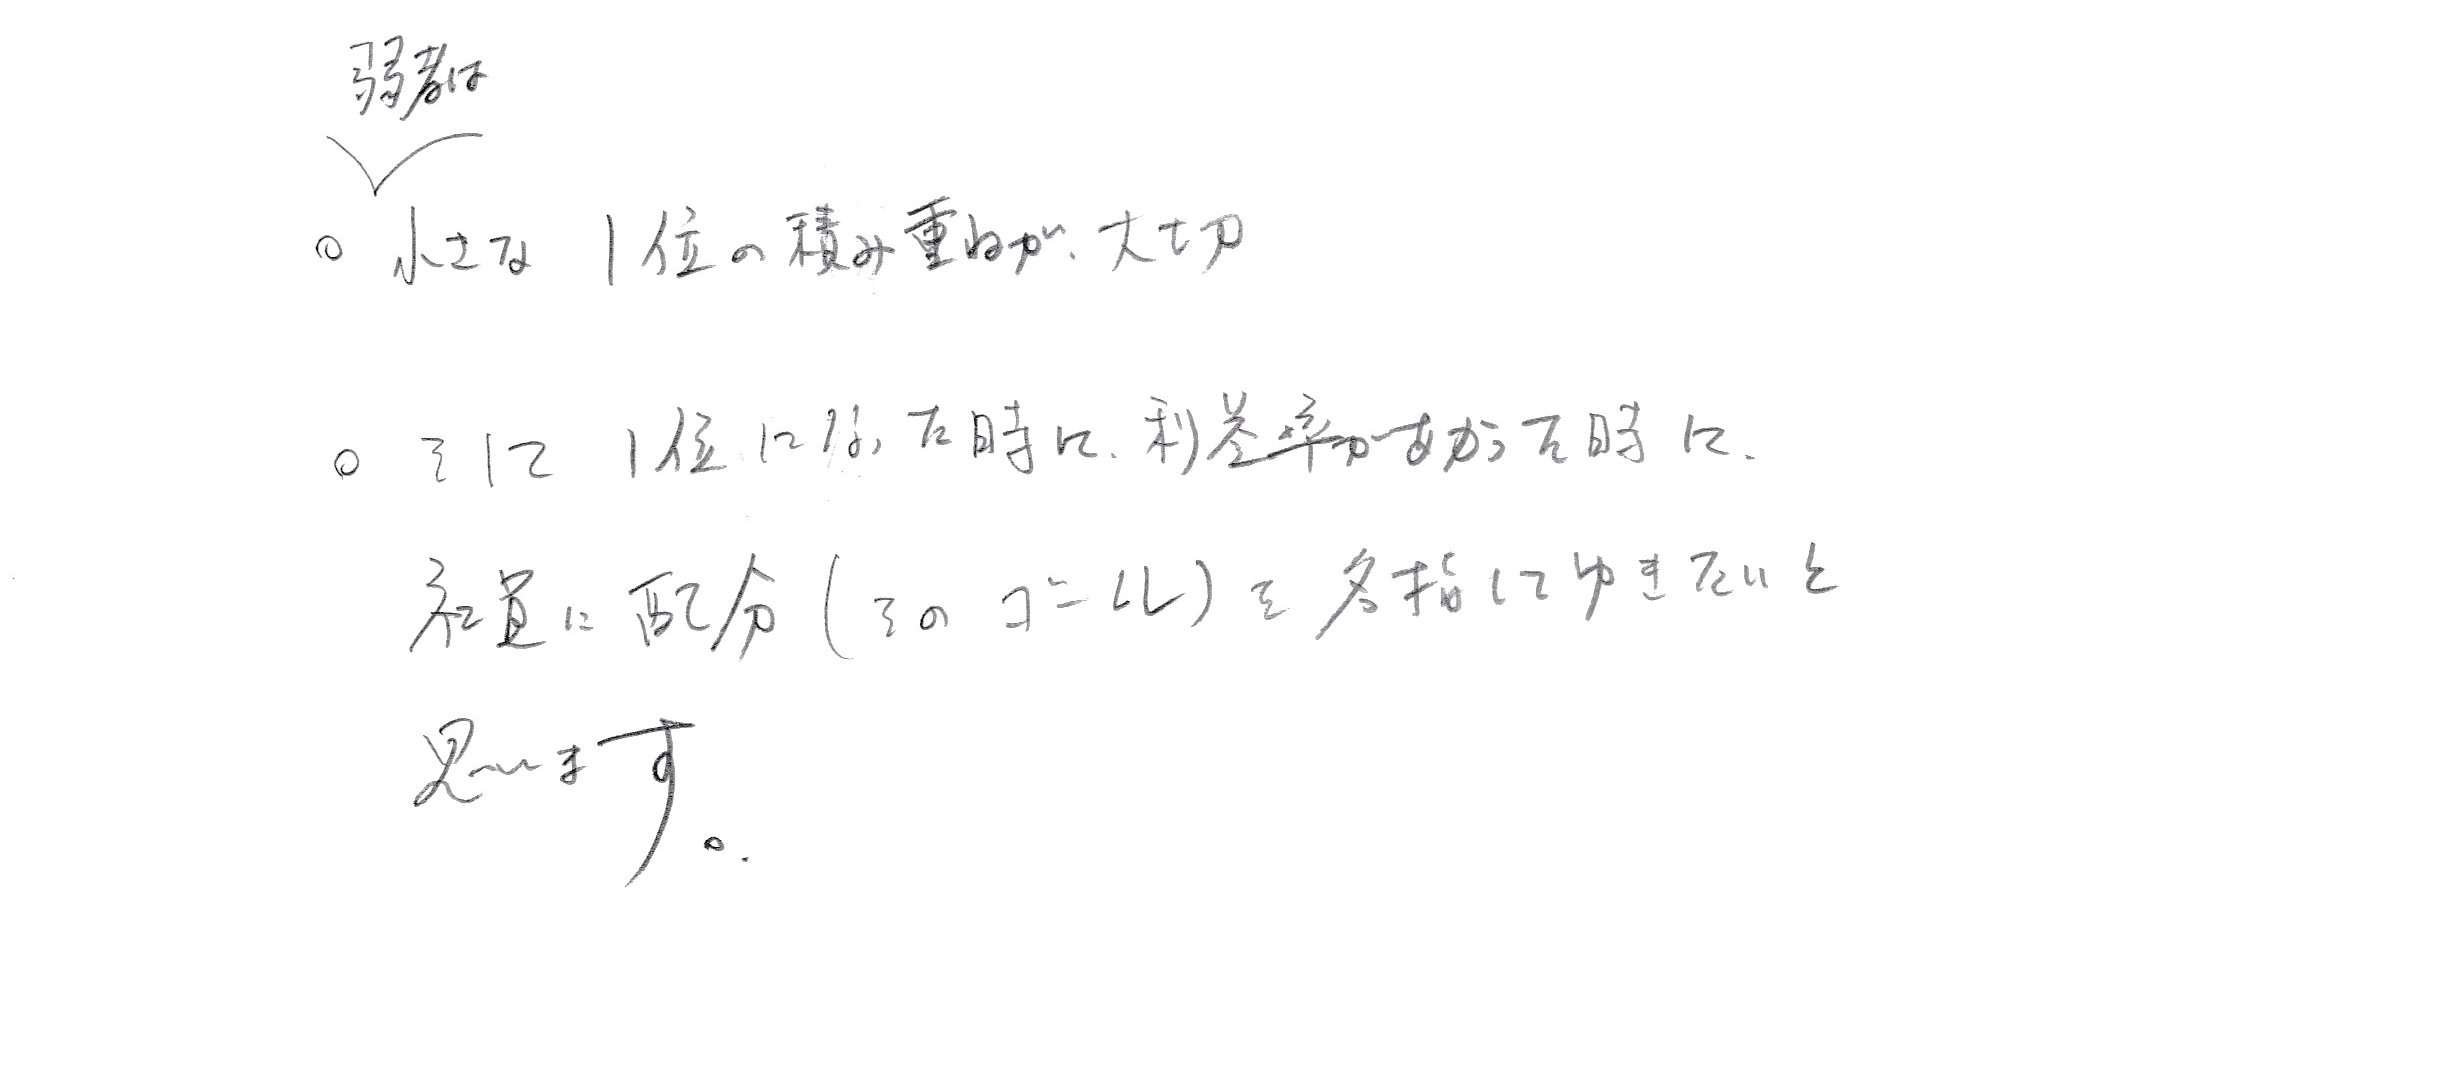 弱者は
○ 小さな 1位の積み重ねが、大切
○ そして 1位になった時に、利益率があがった時に、
社員に配分(そのゴール)を目指してゆきたいと
思います。